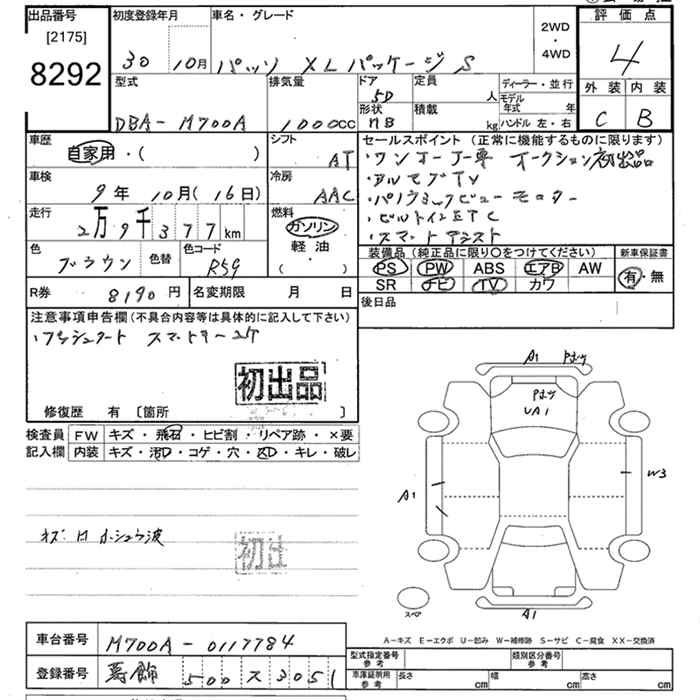 出品番号
[2175]
8292
初度登録年月
30 10月
車名・グレード
パッソ XLパッケージS
2WD
・
4WD
評価点
4
外装 内装
C B
型式
DBA-M700A
排気量
1000cc
ドア
5D
形状
HB
定員
人
積載
kg
ディーラー・並行
モデル年式 年
ハンドル 左・右
車歴
自家用・( )
シフト
AT
車検
9年 10月(16日)
冷房
AAC
走行
2万9千377km
燃料
ガソリン
軽油
( )
色
ブラウン
色替
色コード
R59
セールスポイント(正常に機能するものに限ります)
・ワンオーナー車 オークション初出品
・フルセグTV
・パノラミックビューモニター
・ビルトインETC
・スマートアシスト
装備品(純正品に限り○をつけてください)
PS PW ABS エアB AW
SR ナビ TV カワ
新車保証書
有・無
R券 8190円
名変期限 月 日
後日品
注意事項申告欄(不具合内容等は具体的に記入して下さい)
・プッシュスタート スマートキー2ケ
初出品
修復歴 有 [箇所 ]
検査員
記入欄
FW キズ・飛石・ヒビ割・リペア跡・×要
内装 キズ・汚D・コゲ・穴・スD・キレ・破レ
A1
Pはゲ
Pはゲ
UA1
W3
A1
A1
スペア
A−キズ E−エクボ U−凹み W−補修跡 S−サビ C−腐食 XX−交換済
車台番号
M700A-0117784
登録番号
葛飾 500 ス 3051
型式指定番号
参考
類別区分番号
参考
車庫証明用
参考
長さ cm
幅 cm
高さ cm